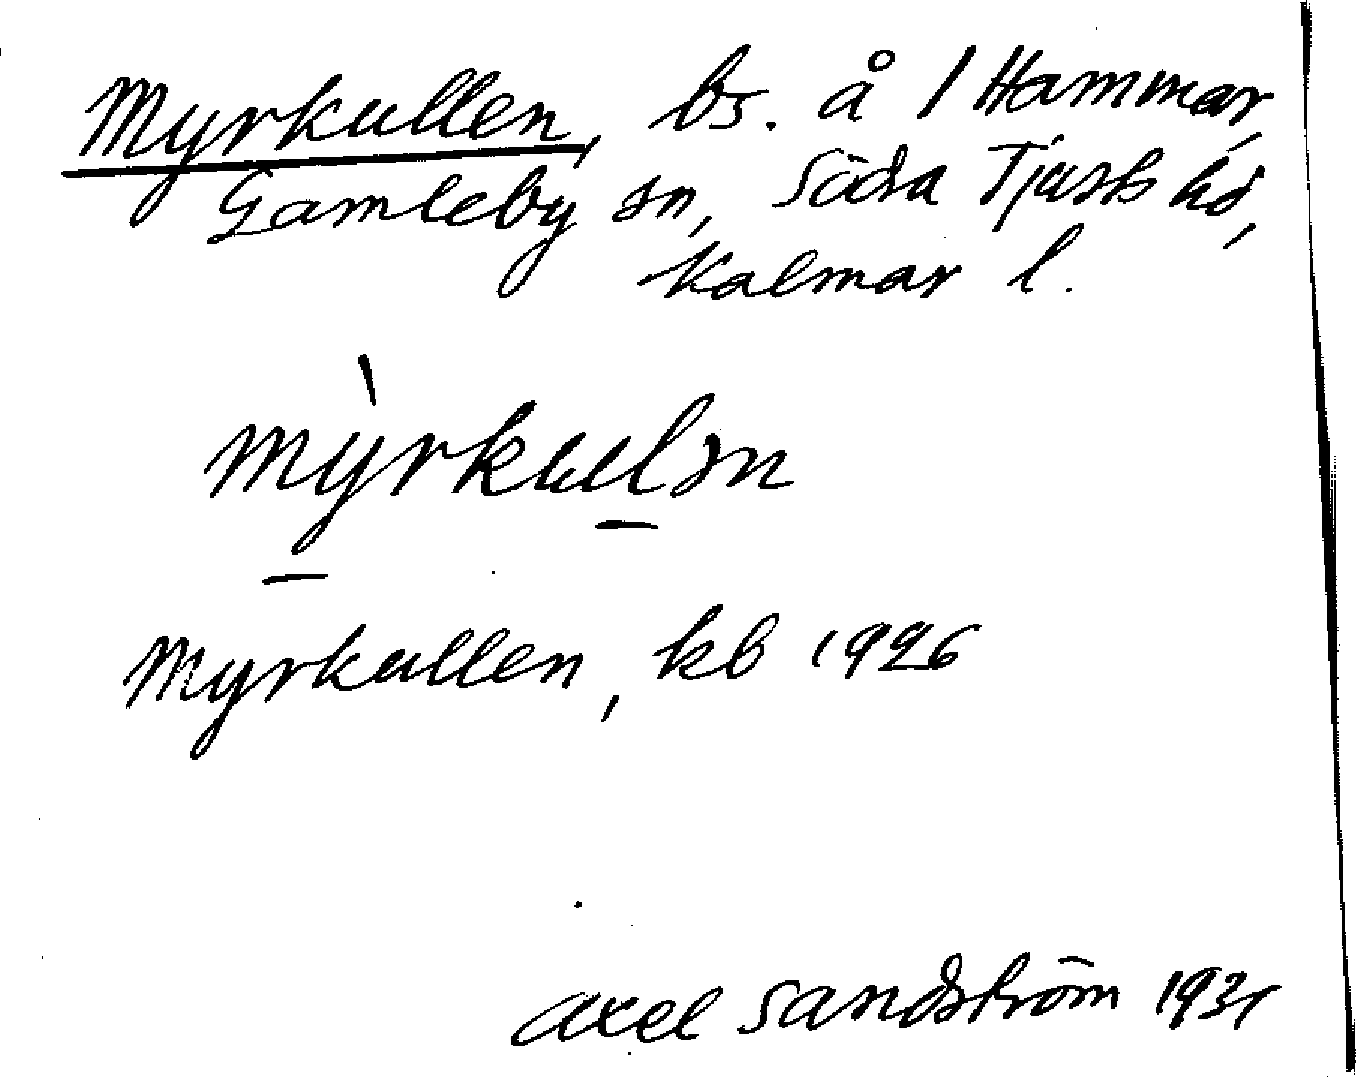 Myrkullen, bs. å 1 Hammar,
Gamleby sn, Södra Tjusts hd,
Kalmar l.
mỳrkulən
Myrkullen, kb 1926
Axel Sandström 1931